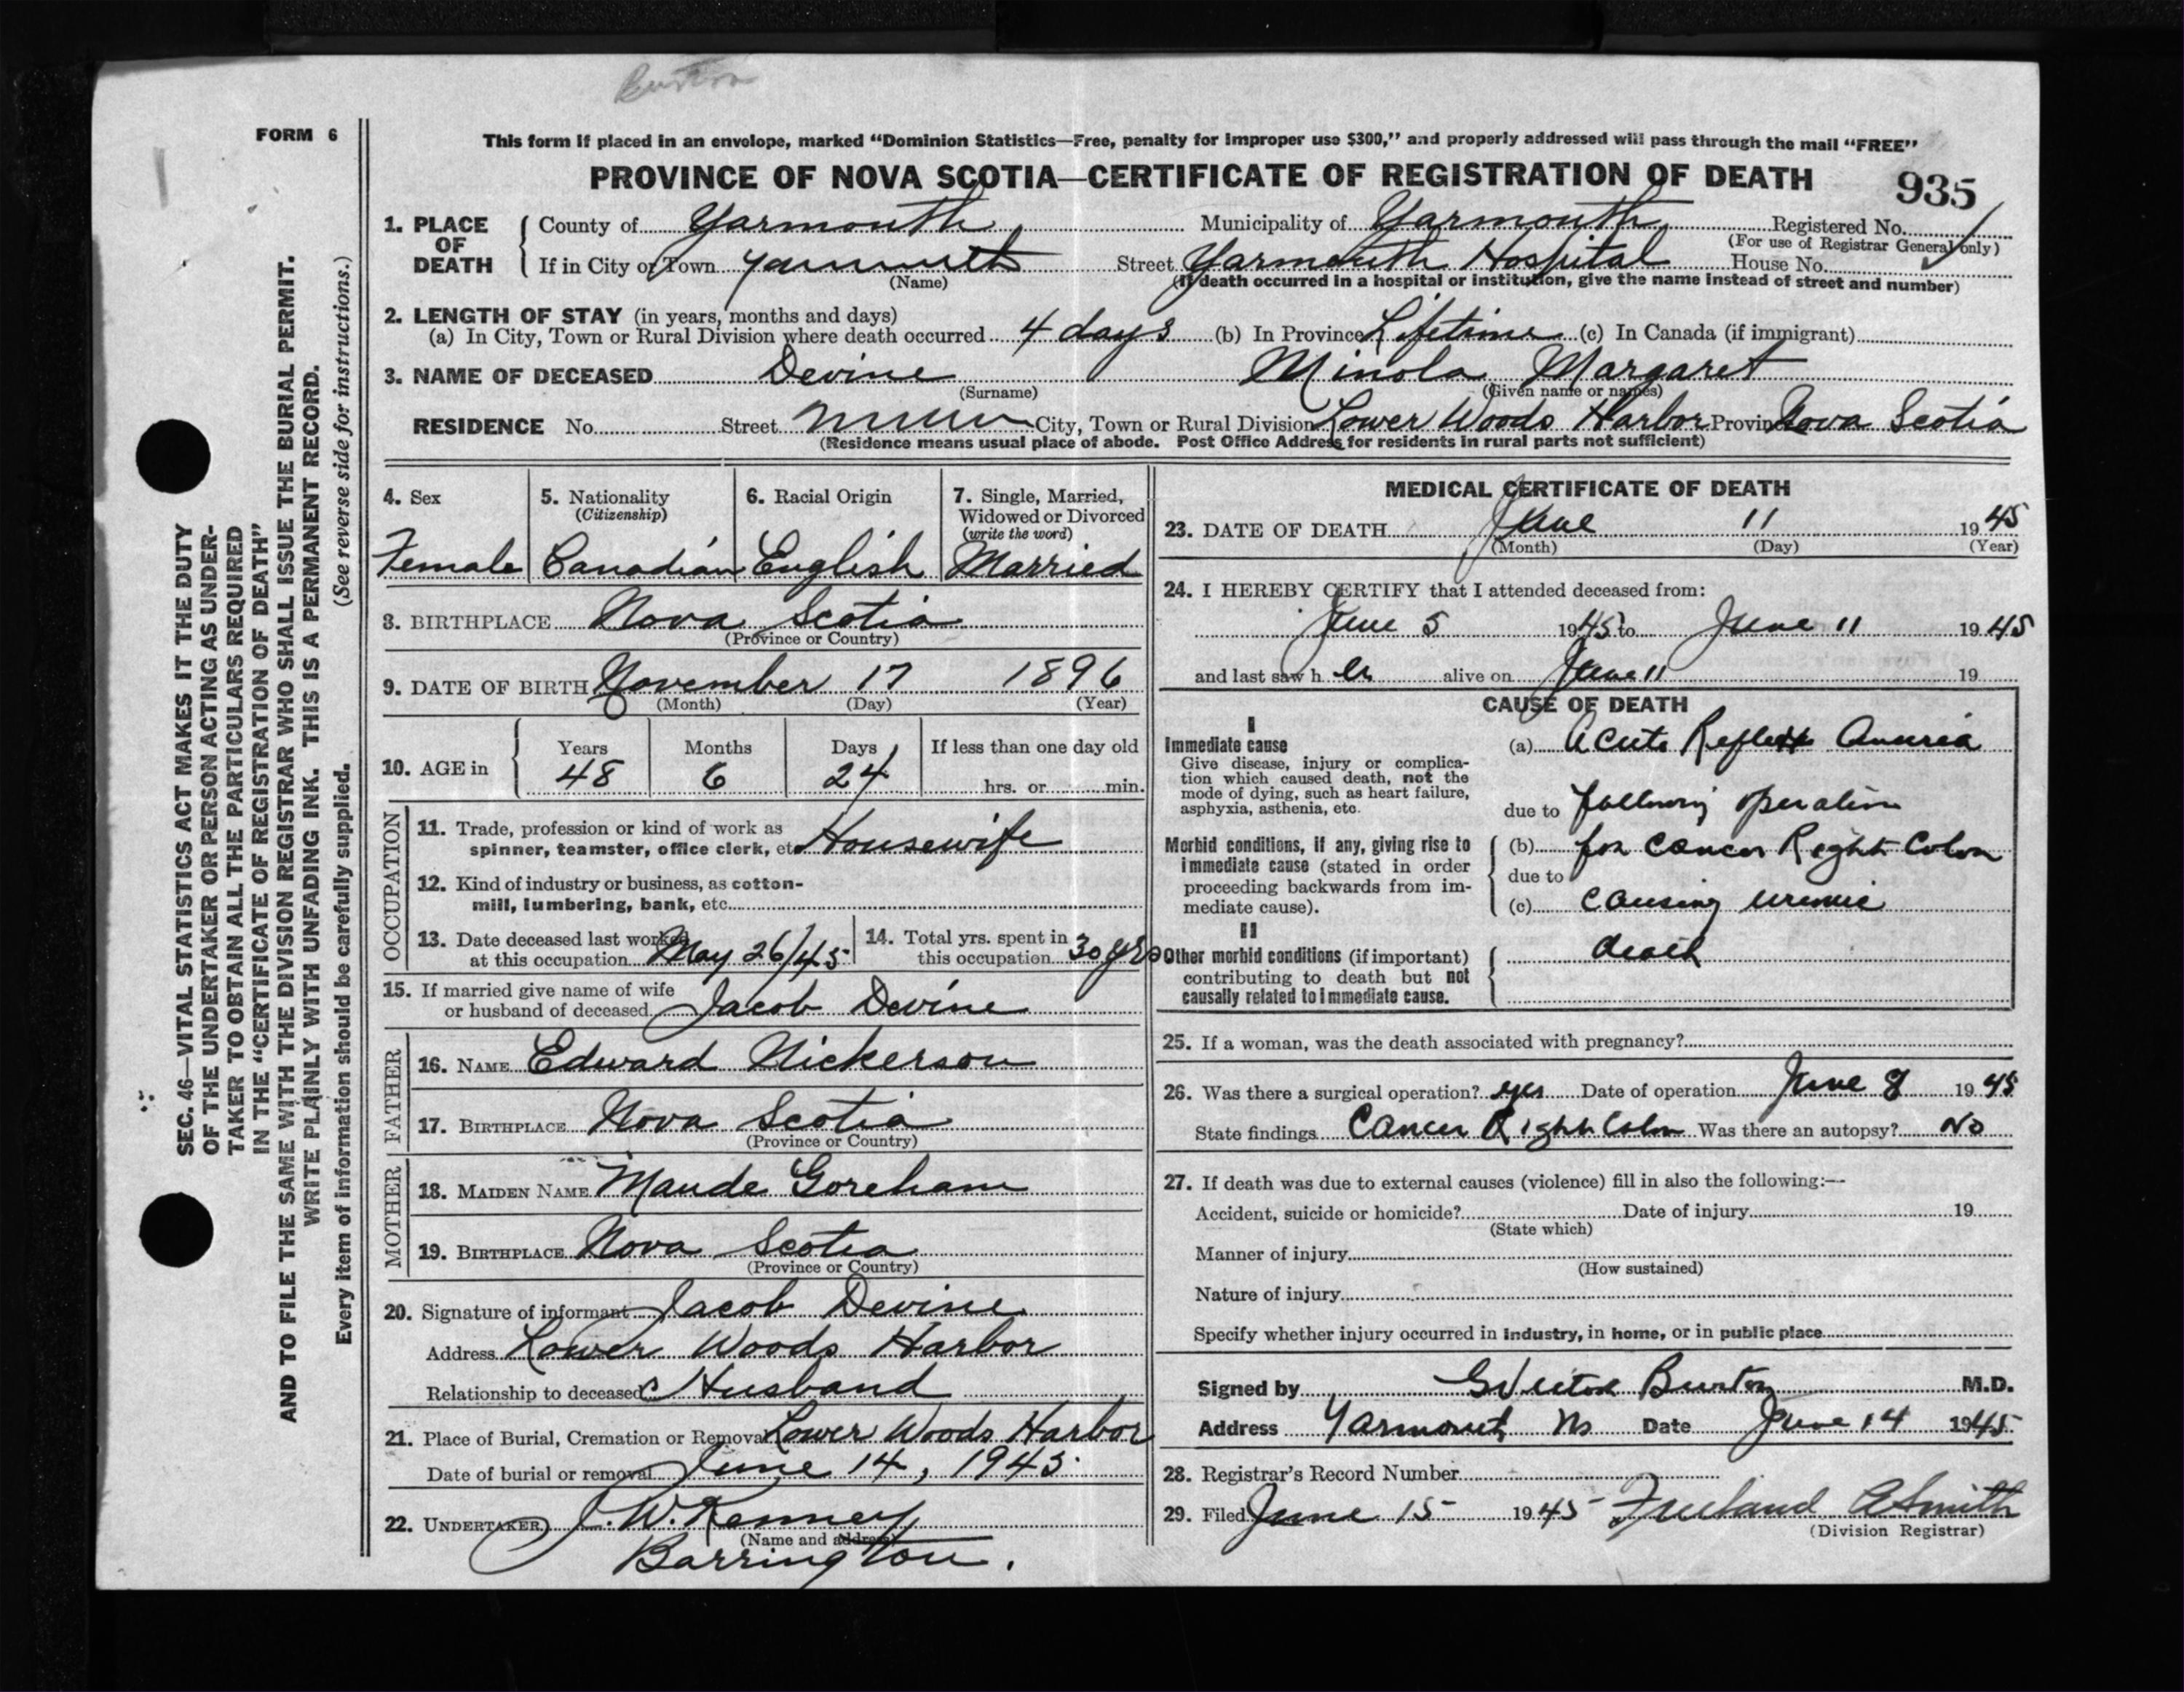 Burton
FORM 6
This form if placed in an envelope, marked “Dominion Statistics—Free, penalty for improper use $300,” and properly addressed will pass through the mail “FREE”
PROVINCE OF NOVA SCOTIA—CERTIFICATE OF REGISTRATION OF DEATH
935
1. PLACE OF DEATH County of Yarmouth Municipality of Yarmouth Registered No.
(For use of Registrar General only)
If in City or Town Yarmouth Street Yarmouth Hospital House No.
(Name) (If death occurred in a hospital or institution, give the name instead of street and number)
2. LENGTH OF STAY (in years, months and days)
(a) In City, Town or Rural Division where death occurred 4 days (b) In Province Lifetime (c) In Canada (if immigrant)
3. NAME OF DECEASED Devine Minola Margaret
(Surname) (Given name or names)
RESIDENCE No. Street City, Town or Rural Division Lower Woods Harbor Province Nova Scotia
(Residence means usual place of abode. Post Office Address for residents in rural parts not sufficient)
4. Sex
Female
5. Nationality
(Citizenship)
Canadian
6. Racial Origin
English
7. Single, Married,
Widowed or Divorced
(write the word)
Married
8. BIRTHPLACE Nova Scotia
(Province or Country)
9. DATE OF BIRTH November 17 1896
(Month) (Day) (Year)
10. AGE in Years Months Days If less than one day old
48 6 24 hrs. or min.
OCCUPATION
11. Trade, profession or kind of work as
spinner, teamster, office clerk, etc. Housewife
12. Kind of industry or business, as cotton-
mill, lumbering, bank, etc.
13. Date deceased last worked
at this occupation May 26/45
14. Total yrs. spent in
this occupation 30 yrs
15. If married give name of wife
or husband of deceased Jacob Devine
FATHER
16. NAME Edward Nickerson
17. BIRTHPLACE Nova Scotia
(Province or Country)
MOTHER
18. MAIDEN NAME Maude Goreham
19. BIRTHPLACE Nova Scotia
(Province or Country)
20. Signature of informant Jacob Devine
Address Lower Woods Harbor
Relationship to deceased Husband
21. Place of Burial, Cremation or Removal Lower Woods Harbor
Date of burial or removal June 14, 1945
22. UNDERTAKER J. W. Kenney
(Name and address)
Barrington.
MEDICAL CERTIFICATE OF DEATH
23. DATE OF DEATH June 11 1945
(Month) (Day) (Year)
24. I HEREBY CERTIFY that I attended deceased from:
June 5 1945 to June 11 1945
and last saw h er alive on June 11 19
CAUSE OF DEATH
I
Immediate cause
Give disease, injury or complica-
tion which caused death, not the
mode of dying, such as heart failure,
asphyxia, asthenia, etc.
(a) Acute Reflex Anuria
due to following operation
Morbid conditions, if any, giving rise to
immediate cause (stated in order
proceeding backwards from im-
mediate cause).
(b) for Cancer Right Colon
due to
(c) Causing uremic
II
Other morbid conditions (if important)
contributing to death but not
causally related to immediate cause.
death
25. If a woman, was the death associated with pregnancy?
26. Was there a surgical operation? yes Date of operation June 8 1945
State findings Cancer Right Colon Was there an autopsy? No
27. If death was due to external causes (violence) fill in also the following:—
Accident, suicide or homicide? Date of injury 19
(State which)
Manner of injury
(How sustained)
Nature of injury
Specify whether injury occurred in industry, in home, or in public place
Signed by G Victor Burton M.D.
Address Yarmouth Ns Date June 14 1945
28. Registrar's Record Number
29. Filed June 15 1945 Freeland A Smith
(Division Registrar)
SEC. 46—VITAL STATISTICS ACT MAKES IT THE DUTY
OF THE UNDERTAKER OR PERSON ACTING AS UNDER-
TAKER TO OBTAIN ALL THE PARTICULARS REQUIRED
IN THE “CERTIFICATE OF REGISTRATION OF DEATH”
AND TO FILE THE SAME WITH THE DIVISION REGISTRAR WHO SHALL ISSUE THE BURIAL PERMIT.
WRITE PLAINLY WITH UNFADING INK. THIS IS A PERMANENT RECORD.
Every item of information should be carefully supplied. (See reverse side for instructions.)